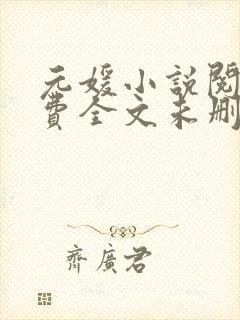 元媛小說閱
費全文未刪
齊廣君